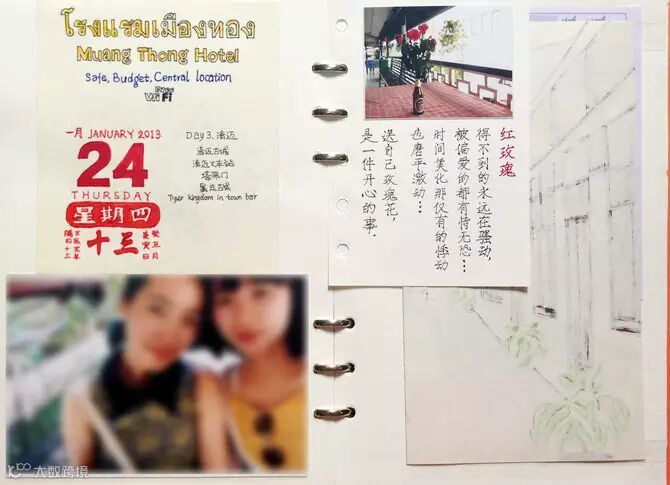 โรงแรมเมืองทอง
Muang Thong Hotel
Safe, Budget, Central location
Free
WiFi
一月 JANUARY 2013
24
THURSDAY
星期四
十三
Day 3. 清迈
清迈古城
清迈火车站
塔佩门
Tiger kingdom in town bar
红玫瑰
得不到的永远在骚动,
被偏爱的都有恃无恐…
时间美化那仅有的悸动
也磨平激动…
送自己玫瑰花,
是一件开心的事.
大数跨境